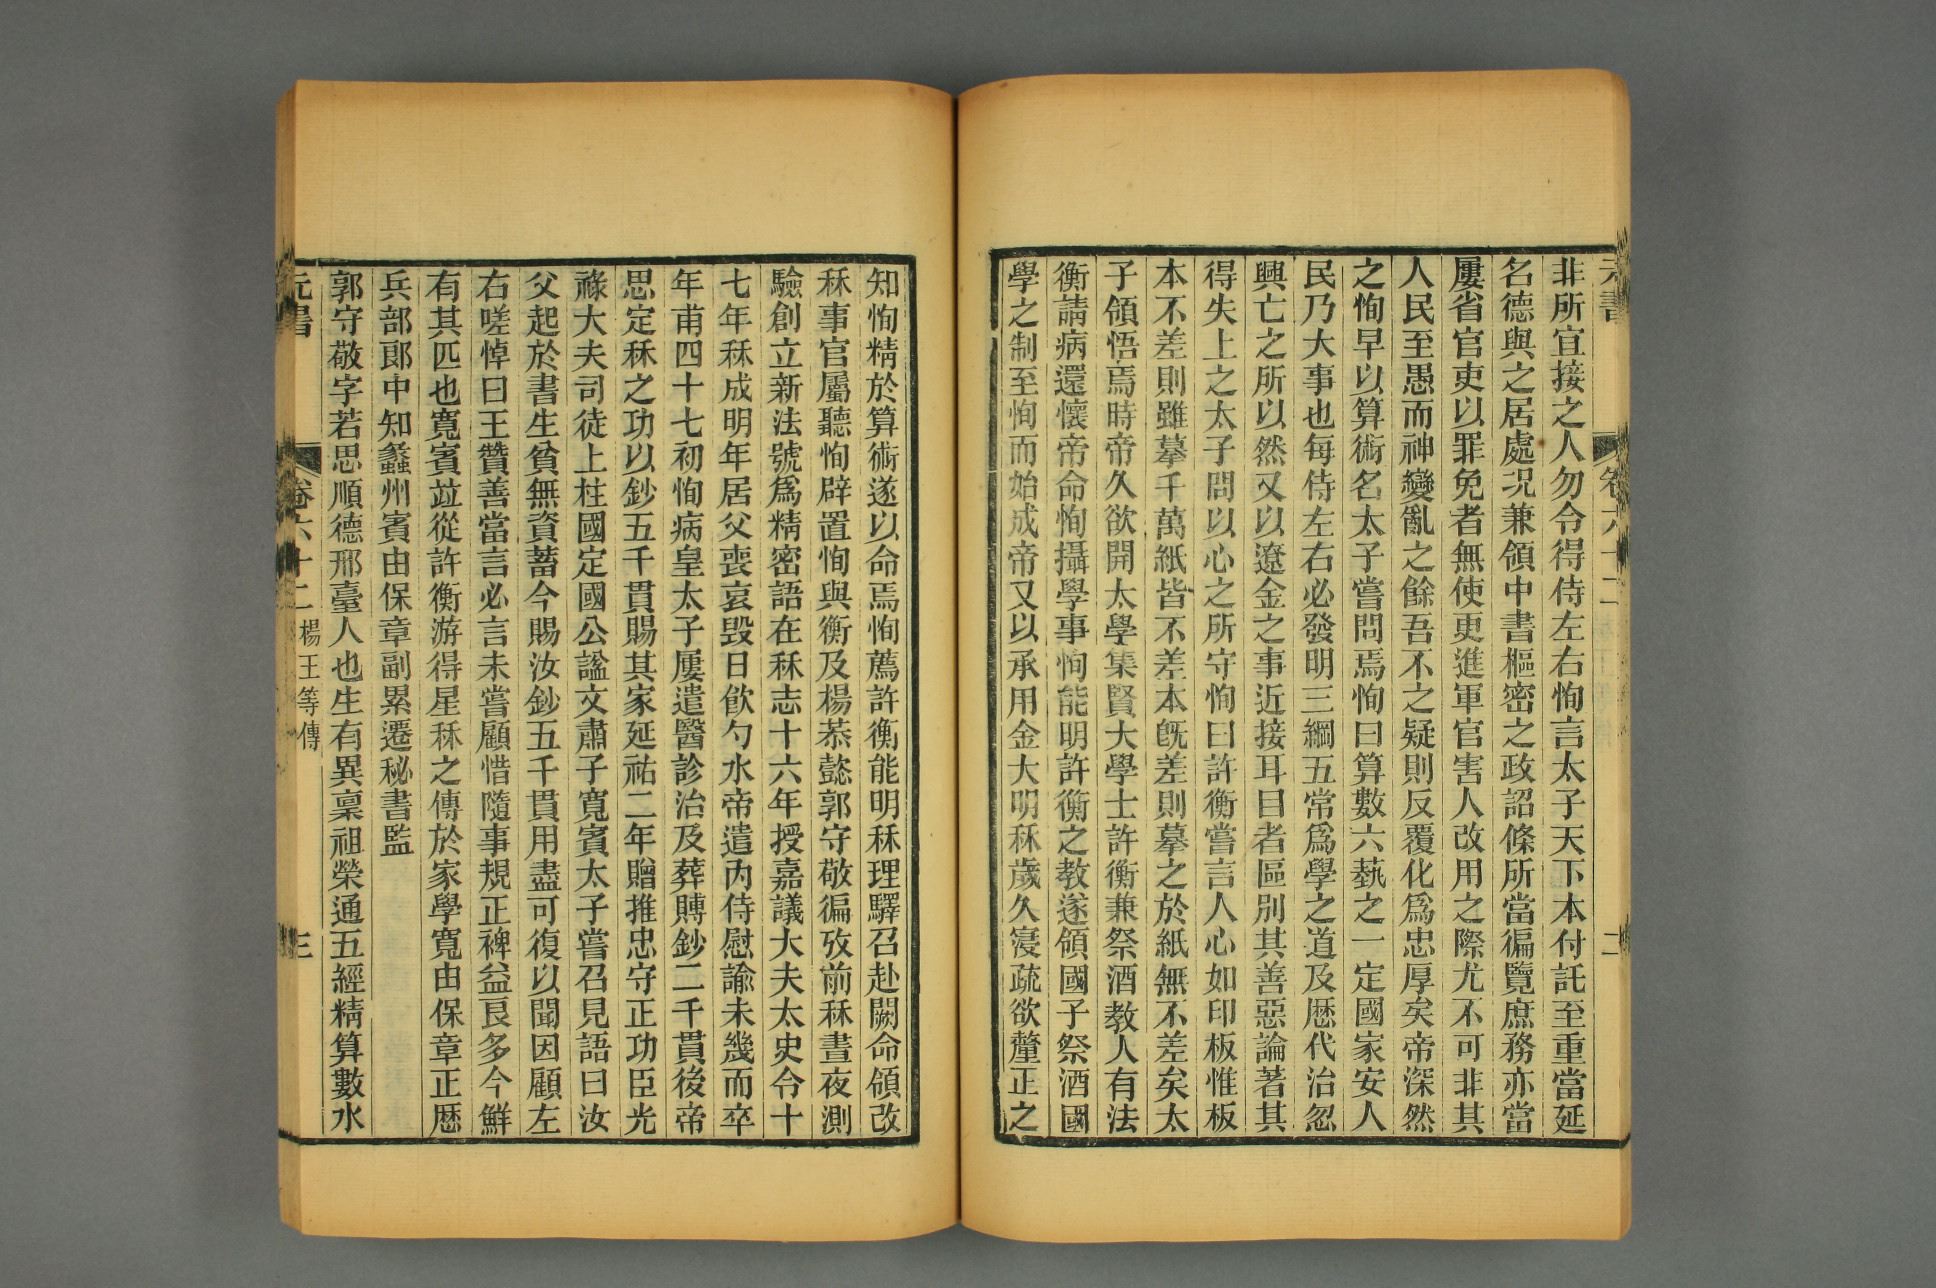 元書 卷六十二 二
非所宜接之人勿令得侍左右恂言太子天下本付託至重當延
名德與之居處况兼領中書樞密之政詔條所當徧覽庶務亦當
屢省官吏以罪免者無使更進軍官害人改用之際尤不可非其
人民至愚而神變亂之餘吾不之疑則反覆化爲忠厚矣帝深然
之恂早以算術名太子嘗問焉恂曰算數六藝之一定國家安人
民乃大事也每侍左右必發明三綱五常爲學之道及厯代治忽
興亡之所以然又以遼金之事近接耳目者區別其善惡論著其
得失上之太子問以心之所守恂曰許衡嘗言人心如印板惟板
本不差則雖摹千萬紙皆不差本旣差則摹之於紙無不差矣太
子領悟焉時帝久欲開太學集賢大學士許衡兼祭酒教人有法
衡請病還懷帝命恂攝學事恂能明許衡之教遂領國子祭酒國
學之制至恂而始成帝又以承用金大明秝歲久寖疏欲釐正之
知恂精於算術遂以命焉恂薦許衡能明秝理驛召赴闕命領改
秝事官屬聽恂辟置恂與衡及楊恭懿郭守敬徧攷前秝晝夜測
驗創立新法號爲精密語在秝志十六年授嘉議大夫太史令十
七年秝成明年居父喪哀毀日飮勺水帝遣内侍慰諭未幾而卒
年甫四十七初恂病皇太子屢遣醫診治及葬賻鈔二千貫後帝
思定秝之功以鈔五千貫賜其家延祐二年贈推忠守正功臣光
祿大夫司徒上柱國定國公謚文肅子寬賓太子嘗召見語曰汝
父起於書生貧無資蓄今賜汝鈔五千貫用盡可復以聞因顧左
右嗟悼曰王贊善當言必言未嘗顧惜隨事規正裨益良多今鮮
有其匹也寬賓竝從許衡游得星秝之傳於家學寬由保章正厯
兵部郞中知蠡州賓由保章副累遷秘書監
郭守敬字若思順德邢臺人也生有異稟祖榮通五經精算數水
元書 卷六十二 楊王等傳 三